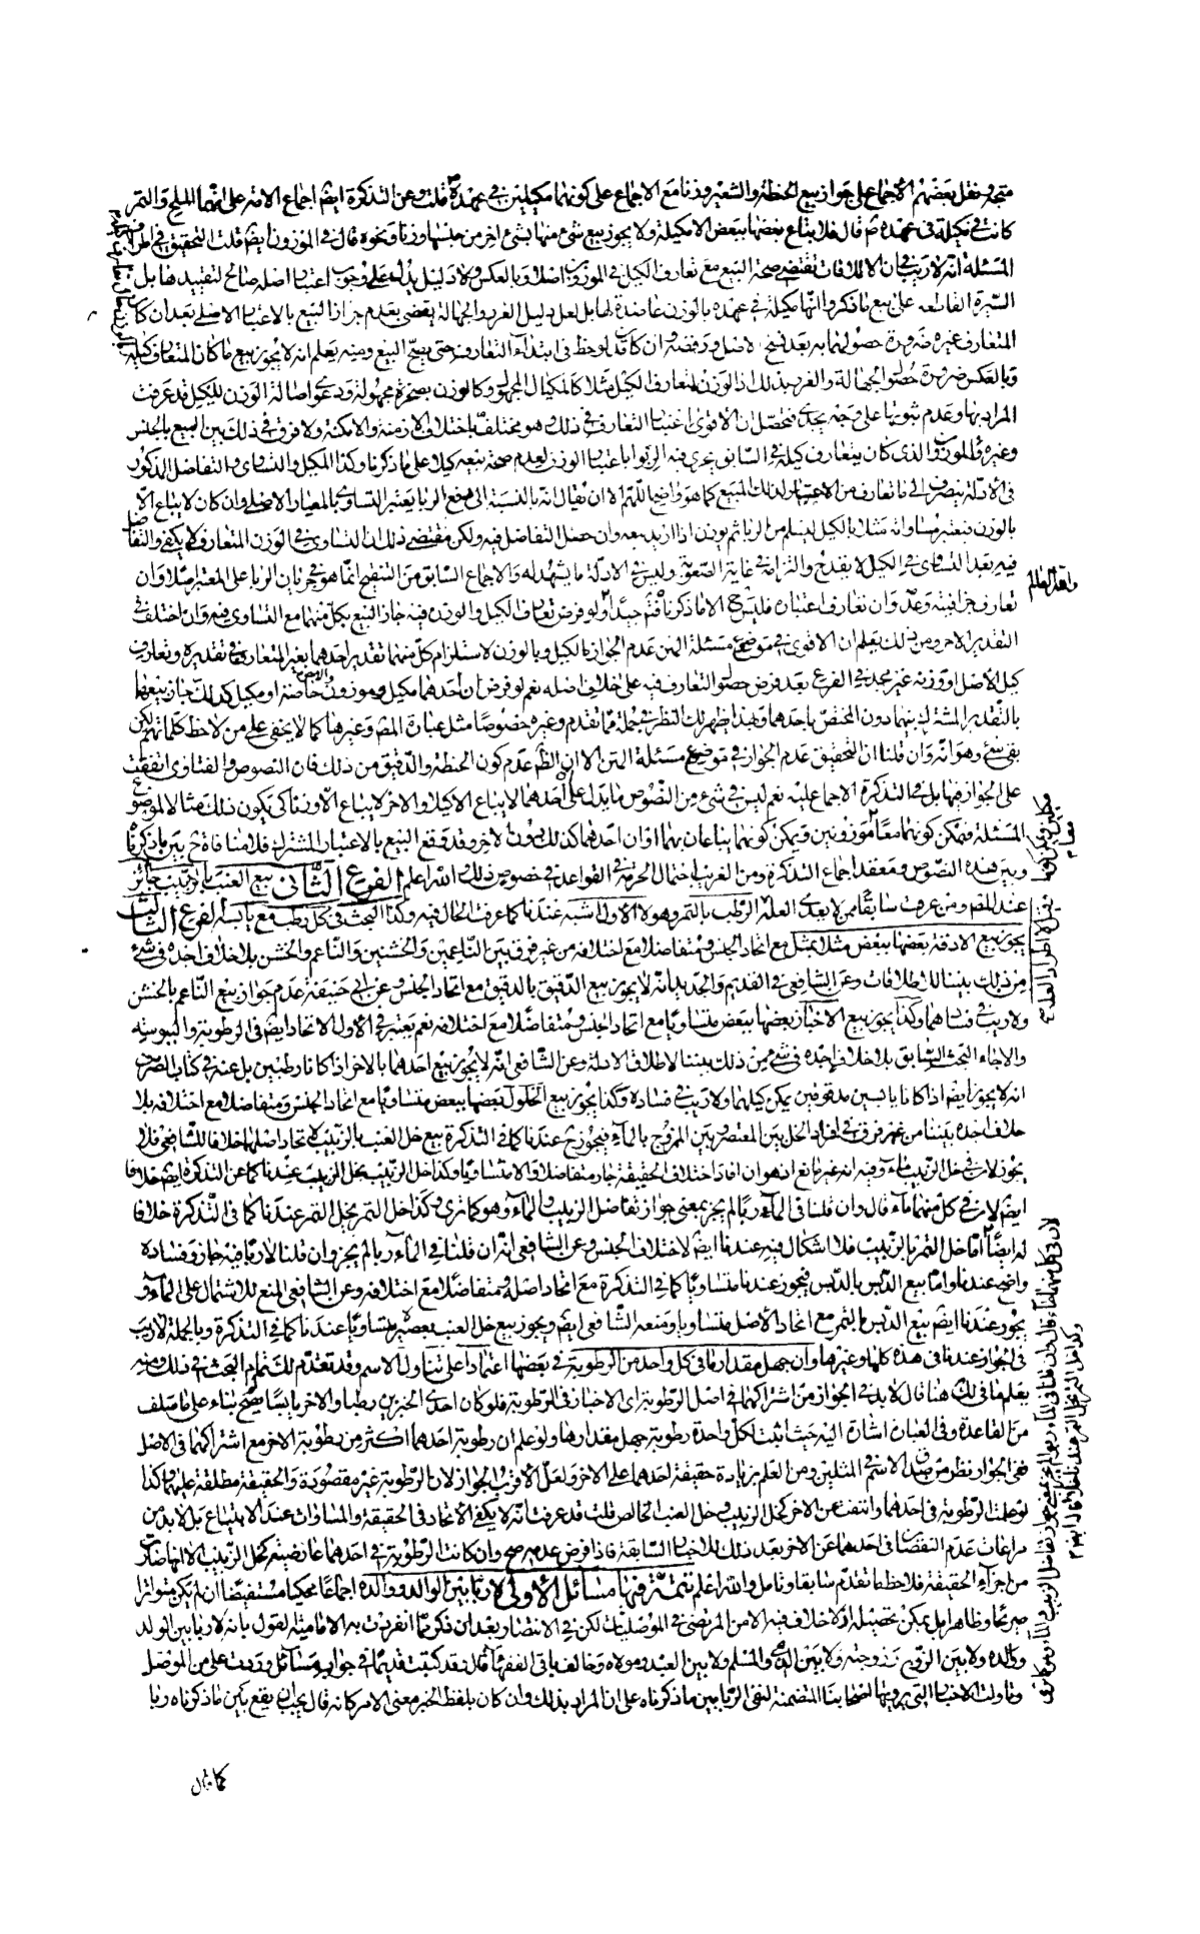 متجه ونقل بعضهم الاجماع على جواز بيع الحنطة والشعير وزنا مع الاجماع على كونهما مكيلين في عهده ص قلت وعن التذكرة ايضا اجماع الامة على انهما والملح والتمر
كانت مكيلة في عهده ص ثم قال فلا يباع بعضها ببعض الا مكيلة ولا يجوز بيع شئ منها بشئ اخر من جنسها وزنا ونحوه قال في الموزون ايضا قلت التحقيق في اطراف
المسئلة انه لا ريب في ان الاطلاقات تقتضي صحة البيع مع تعارف الكيل في الموزون اصلا وبالعكس ولا دليل يدل على وجوب اعتبار اصله صالح لتقييدها بل
السيرة القاطعة على بيع ما ذكروا انها مكيلة في عهده بالوزن عاضدة لها بل لعل دليل الغرر والجهالة يقضي بعدم جواز البيع بالاعتبار الاصلي بعد ان كان
المتعارف غيره ضرورة حصولهما به بعد نسخ الاصل ورفضه وان كان قد لوحظ في ابتداء التعارف حتى يصح البيع ومنه يعلم انه لا يجوز بيع ما كان المتعارف كيله
وبالعكس ضرورة حصول الجهالة والغرر بذلك اذ الوزن لمتعارف الكيل مثلا كالمكيال المجهول وكالوزن بصخرة مجهولة ودعوى اصالة الوزن للكيل قد عرفت
المراد بها وعدم ثبوتها على وجه يجدي فتحصل ان الاقوى اعتبار التعارف في ذلك وهو مختلف باختلاف الازمنة والامكنة ولا فرق في ذلك بين البيع بالجنس
وغيره والموزون والذي كان يتعارف كيله في السابق يجري فيه الربوا باعتبار الوزن لعدم صحة بيعه كيلا على ما ذكرنا وكذا المكيل والتساوي والتفاضل المذكور
في الادلة ينصرف الى ما تعارف من الاعتبار لذلك المبيع كما هو واضح اللهم الا ان يقال انه بالنسبة الى رفع الربا يعتبر التساوي بالمعيار الاصلي وان كان لا يباع الا
بالوزن فيعتبر مساواته مثلا بالكيل ليسلم من الربا ثم يوزن اذا اريد بيعه وان حصل التفاضل فيه ولكن مقتضى ذلك ان التساوي في الوزن المتعارف لا يكفي والتفاضل
فيه بعد التساوي في الكيل لا يقدح والتزامه في غاية الصعوبة وليس في الادلة ما يشهد له والاجماع السابق من التنقيح انما هو في جريان الربا على المعتبر مثلا وان
تعارف جزافيته وعده وان تعارف اعتباره فليس ح الا ما ذكرنا فتم جيدا ولو فرض تعارف الكيل والوزن فيه جاز البيع بكل منهما مع التساوي فيه وان اختلف في
التقدير الاخر ومن ذلك يعلم ان الاقوى في موضع مسئلة المتن عدم الجواز بالكيل وبالوزن لاستلزام كل منهما تقدير احدهما بغير المتعارف في تقديره وتعارف
كيل الاصل او وزنه غير مجد في الفرع بعد فرض حصول التعارف فيه على خلاف اصله نعم لو فرض ان احدهما مكيل وموزون والاخر موزون خاصة او مكيل كذلك جاز بيعهما
بالتقدير المشترك بينهما دون المختص باحدهما وبهذا ظهر لك النظر في جملة مما تقدم وغيره خصوصا مثل عبارة المص وغيرها كما لا يخفى على من لاحظ كلماتهم لكن
بقي شئ وهو انه وان قلنا ان التحقيق عدم الجواز في توضيح مسئلة المتن الا ان الظ عدم كون الحنطة والدقيق من ذلك فان النصوص والفتاوى اتفقت
على الجواز فيها بل في التذكرة الاجماع عليه نعم ليس في شئ من النصوص ما يدل على ان احدهما لا يباع الا كيلا والاخر لا يباع الا وزنا كي يكون ذلك مثالا لموضوع
المسئلة فيمكن كونهما معا موزونين ويمكن كونهما يباعان بهما او ان احدهما كذلك دون الاخر وقد وقع البيع بالاعتبار المشترك فلا منافاة ح بين ما ذكرنا
وبين هذه النصوص ومعقد اجماع التذكرة ومن الغريب احتمال الخروج عن القواعد في خصوص ذلك والله اعلم الفرع الثاني بيع العنب بالزبيب جائز
عند المصنف ومن عرفت سابقا ممن لا يعدي العلة الرطب بالتمر وهو لا الاولى اشبه عندنا كما عرفت الحال فيه وكذا البحث في كل رطب مع يابسه الفرع الثالث
يجوز بيع الادقة بعضها ببعض مثلا بمثل مع اتحاد الجنس ومتفاضلا مع اختلافه من غير فرق بين الناعمين والخشنين والناعم والخشن بلا خلاف اجده في شئ
من ذلك بيننا للاطلاقات وعن الشافعي في القديم والجديد انه لا يجوز بيع الدقيق بالدقيق مع اتحاد الجنس وعن ابي حنيفة عدم جواز بيع الناعم بالخشن
ولا ريب في فسادهما وكذا يجوز بيع الاخباز بعضها ببعض متساويا مع اتحاد الجنس ومتفاضلا مع اختلافه نعم يعتبر في الاول الاتحاد ايضا في الرطوبة واليبوسة
والا جاء البحث السابق بلا خلاف اجده في شئ من ذلك بيننا لاطلاق الادلة وعن الشافعي انه لا يجوز بيع احدهما بالاخر اذا كانا رطبين بل عنه في كتاب الصرف
انه لا يجوز ايضا اذا كانا يابسين مدقوقين يمكن كيلهما ولا ريب في فساده وكذا يجوز بيع الخلول بعضها ببعض متساويا مع اتحاد الجنس ومتفاضلا مع اختلافه بلا
خلاف اجده بيننا من غير فرق في افراد الخل بين المعتصر وبين الممزوج بالماء فيجوز ح عندنا كما في التذكرة بيع خل العنب بخل الزبيب لاتحاد اصلهما خلافا للشافعي فلا
يجوز لان في خل الزبيب ماء وفيه انه غير مانع اذ هو ان افاد اختلاف الحقيقة جاز متفاضلا والا متساويا وكذا خل الزبيب بخل الزبيب عندنا كما عن التذكرة ايضا خلافا
ايضا لان في كل منهما ماء قال وان قلنا في الماء ربا لم يجز بمعنى جواز تفاضل الزبيب والماء وهو كما ترى وكذا خل التمر بخل التمر عندنا كما في التذكرة خلافا
له ايضا اما خل التمر بالزبيب فلا اشكال فيه عندنا ايضا لاختلاف الجنس وعن الشافعي انه ان قلنا في الماء ربا لم يجز وان قلنا لا ربا فيه جاز وفساده
واضح عندنا واما بيع الدبس بالدبس فيجوز عندنا متساويا كما في التذكرة مع اتحاد اصله ومتفاضلا مع اختلافه وعن الشافعي المنع للاشتمال على الماء و
يجوز عندنا ايضا بيع الدبس بالتمر مع اتحاد الاصل متساويا ومنعه الشافعي ايضا ويجوز بيع خل العنب بعصيره متساويا عندنا كما في التذكرة وبالجملة لا ريب
في الجواز عندنا في هذه كلها وغيرها وان جهل مقدار ما في كل واحد من الرطوبة في بعضها اعتمادا على تناول الاسم وقد تقدم لك تمام البحث في ذلك ومنه
يعلم ما في لك هنا قال لا بد في الجواز من اشتراكهما في اصل الرطوبة اي الاخباز في الرطوبة فلو كان احدى الخبزين رطبا والاخر يابسا يصح بناء على ما سلف
من القاعدة وفي العبارة اشارة اليه حيث اثبت لكل واحدة رطوبة جهل مقدارها ولو علم ان رطوبة احدهما اكثر من رطوبة الاخر مع اشتراكهما في الاصل
ففي الجواز نظر من صدق الاسم في المثلين ومن العلم بزيادة حقيقة احدهما على الاخر ولعل الاقرب الجواز لان الرطوبة غير مقصودة والحقيقة مطلقة عليهما كذا
لو علمت الرطوبة في احدهما وانتفت عن الاخر كخل الزبيب وخل العنب الخالص قلت قد عرفت انه لا يكفي الاتحاد في الحقيقة والمساوات عند الابتياع بل لا بد من
مراعات عدم النقصان في احدهما عن الاخر بعد ذلك للاخبار السابقة فاذا فرض عدمه صح وان كانت الرطوبة في احدهما عارضية كخل الزبيب الا انها صارت
من اجزاء الحقيقة فلاحظ ما تقدم سابقا وتامل والله اعلم تتمة فيها مسائل الاولى لا ربا بين الوالد وولده اجماعا محكيا مستفيضا ان لم يكن متواترا
صريحا وظاهرا بل يمكن تحصيله اذ لا خلاف فيه الا من المرتضى في الموصليات لكن في الانتصار بعد ان ذكر مما انفردت به الامامية القول بانه لا ربا بين الوالد
وولده ولا بين الزوج وزوجته ولا بين الذمي والمسلم ولا بين العبد ومولاه وخالف باقي الفقهاء قال وقد كتبت قديما في جواب مسائل وردت علي من الموصل
وتاولت الاخبار التي يرويها اصحابنا المتضمنة لنفي الربا بين ما ذكرناه على ان المراد بذلك وان كان بلفظ الخبر معنى الامر كانه قال يجب ان لا يقع بين من ذكرناه ربا
كما قال